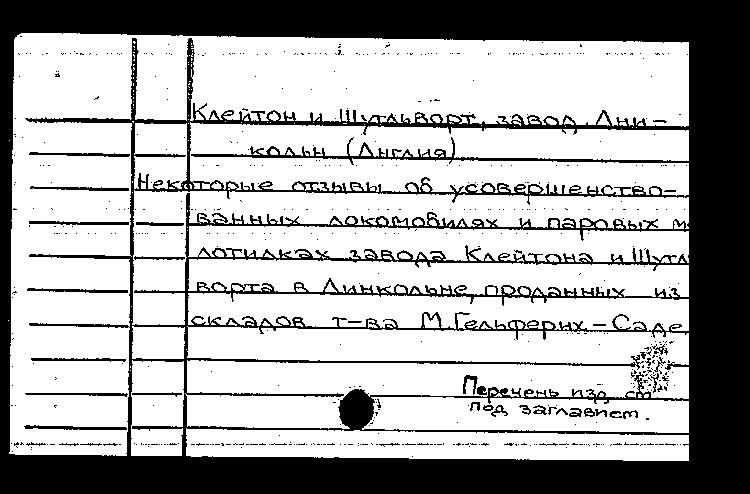 Клейтон и Шутльворт, завод. Лни-
кольн (Англия)
Некоторые отзывы об усовершенство-
ванных локомобилях и паровых мо
лотилках завода Клейтона и Шутл
ворта в Линкольне, проданных из
складов т-ва М. Гельферих-Саде.
Перечень изд. см.
под заглавием.